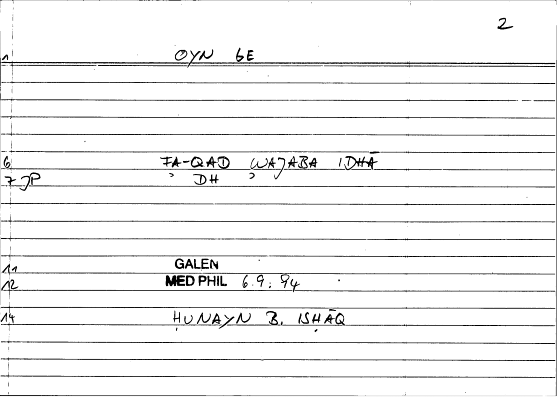 2
1 OYN GE
6 FA-QAD WAJABA IDHĀ
7 JP DH
11 GALEN
12 MED PHIL 6.9:94
14 ḤUNAYN B. ISḤĀQ